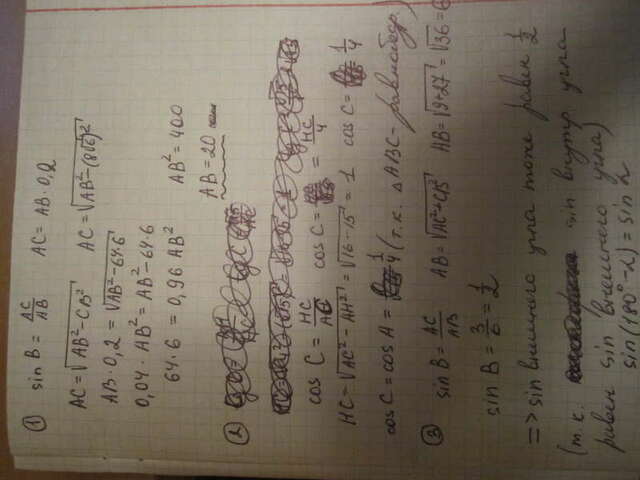 ① sin B = AC/AB   AC = AB · 0,2
AC = √(AB² − CB²)   AC = √(AB² − (8√6)²)
AB · 0,2 = √(AB² − 64·6)
0,04 · AB² = AB² − 64·6
64·6 = 0,96 AB²   AB² = 400
AB = 20
②
cos C = HC/AC   cos C = = HC/4
HC = √(AC² − AH²) = √(16 − 15) = 1   cos C = 1/4
cos C = cos A = 1/4 (т.к. △ABC - равнобедр.)
③ sin B = AC/AB   AB = √(AC² + CB²)   AB = √(9+27) = √36 = 6
sin B = 3/6 = 1/2
=> sin внешнего угла тоже равен 1/2
(т.к. sin внутр. угла
равен sin внешнего угла)
sin(180° − 2) = sin 2